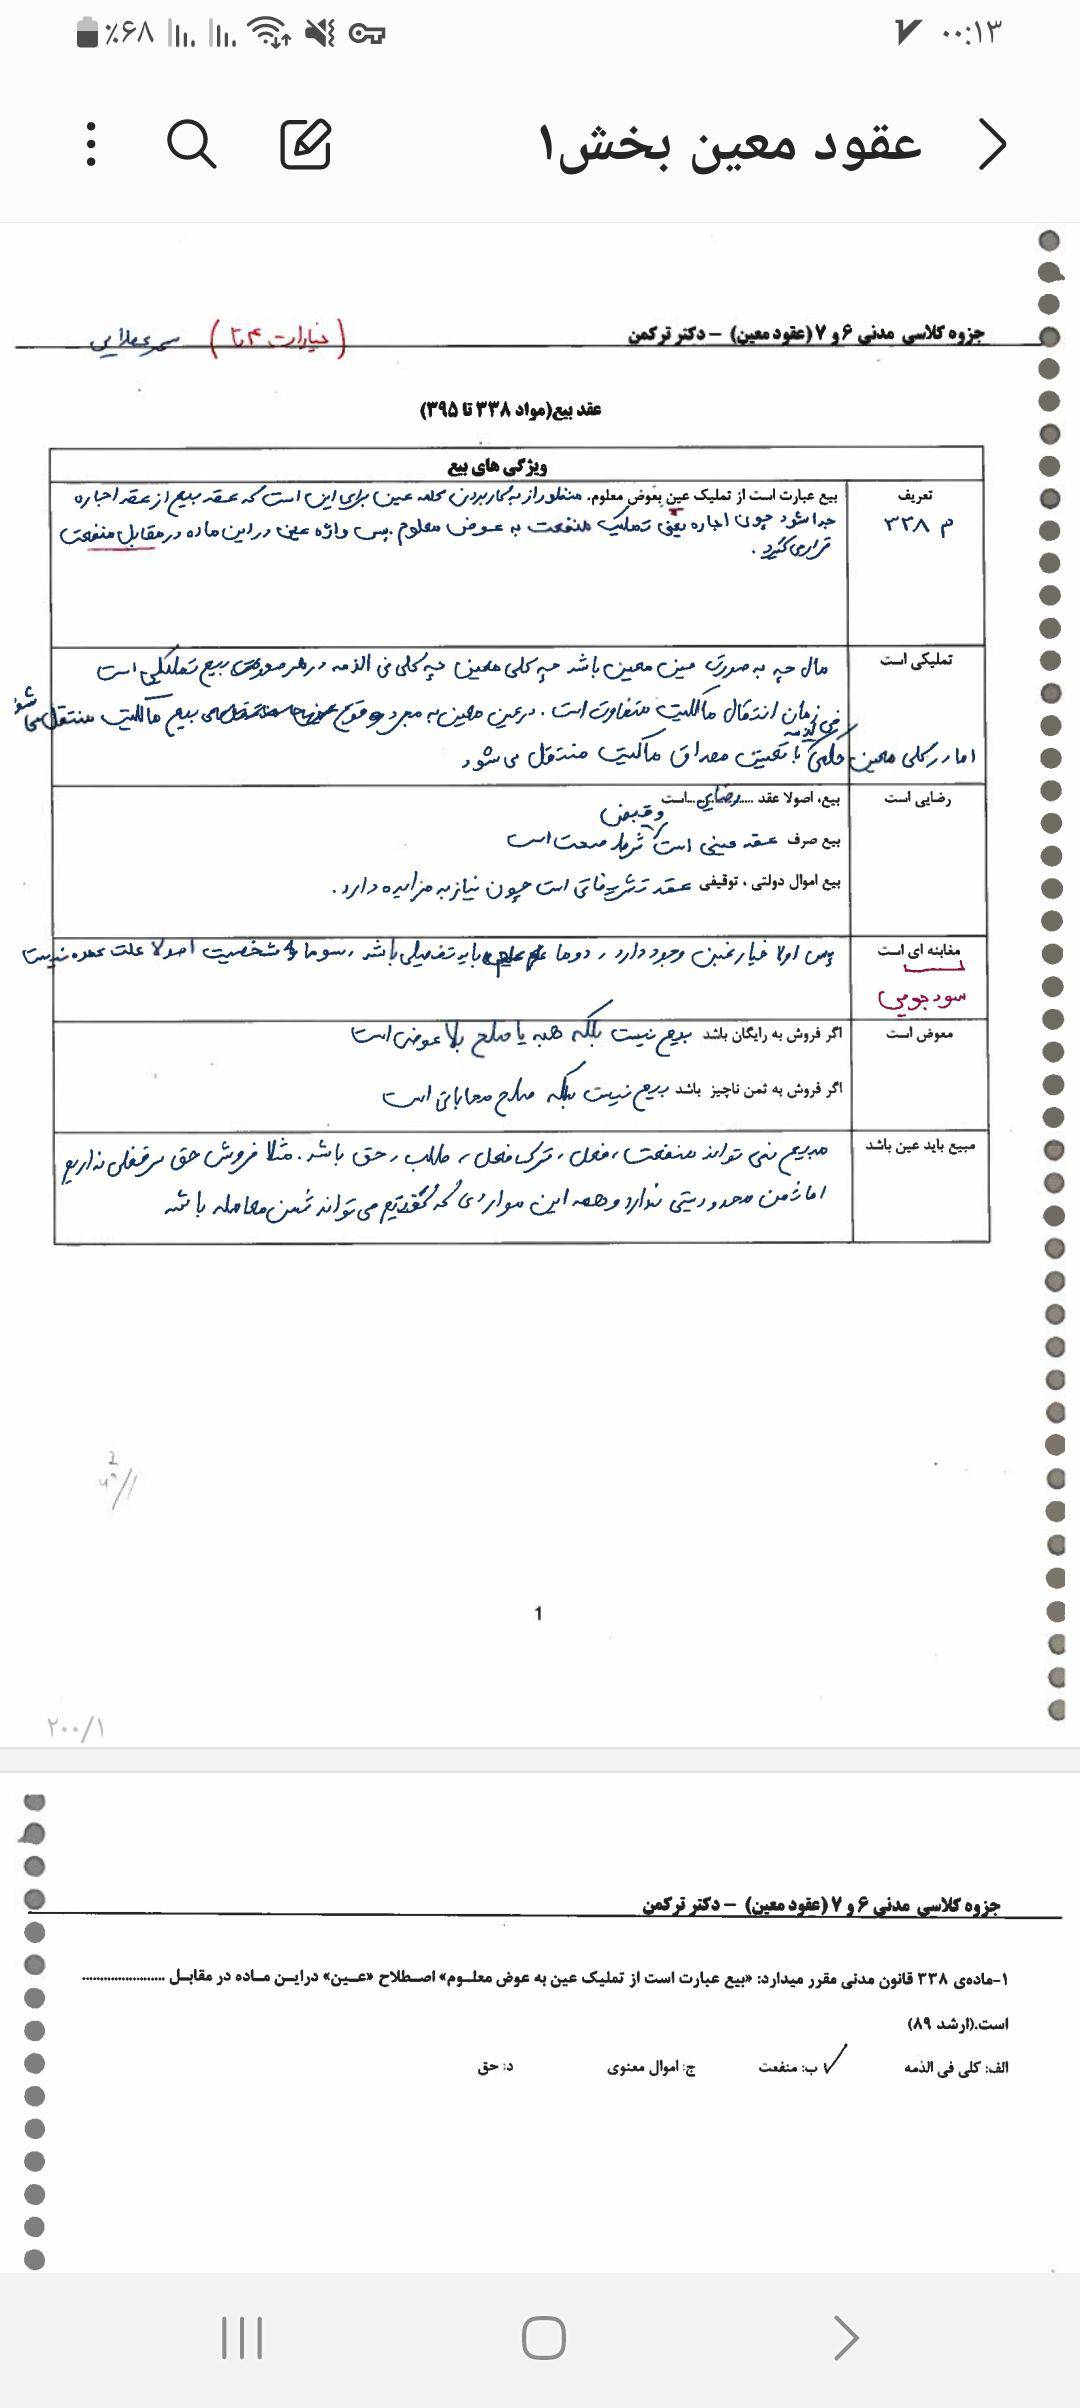 ۰۰:۱۳
٪۶۸
عقود معین بخش۱
جزوه کلاسی مدنی ۶ و ۷ (عقود معین) – دکتر ترکمن
(خیارات ۴ تا)
عقد بیع(مواد ۳۳۸ تا ۳۹۵)
ویژگی های بیع
تعریف
م ۳۳۸
بیع عبارت است از تملیک عین بعوض معلوم. منظور از به کار بردن کلمه عین برای این است که عقد بیع از عقد اجاره
جدا شود چون اجاره یعنی تملیک منفعت به عوض معلوم. پس واژه عین در این ماده در مقابل منفعت
قرار می گیرد.
تملیکی است
مال چه به صورت عین معین باشد چه کلی معین چه کلی فی الذمه در هر صورت بیع تملیکی است
زمان انتقال مالکیت متفاوت است. در عین معین به مجرد وقوع بیع مالکیت منتقل می شود
اما در کلی معین کلی فی الذمه با تعیین مصداق مالکیت منتقل می شود
رضایی است
بیع، اصولا عقد رضایی است
بیع صرف عقد عینی است و قبض شرط صحت است
بیع اموال دولتی ، توقیفی عقد تشریفاتی است چون نیاز به مزایده دارد.
مغابنه ای است
سود جویی
پس اولا خیار غبن وجود دارد، دوما علم باید تفصیلی باشد، سوما شخصیت اصولا علت عمده نیست
معوض است
اگر فروش به رایگان باشد بیع نیست بلکه هبه یا صلح بلا عوض است
اگر فروش به ثمن ناچیز باشد بیع نیست بلکه صلح محاباتی است
مبیع باید عین باشد
مبیع نمی تواند منفعت، فعل، ترک فعل، طلب، حق باشد. مثلا فروش حق سرقفلی نداریم
اما ثمن محدودیتی ندارد و همه این مواردی که گفتیم می تواند ثمن معامله باشد
1
۲۰۰/۱
جزوه کلاسی مدنی ۶ و ۷ (عقود معین) – دکتر ترکمن
۱-ماده‌ی ۳۳۸ قانون مدنی مقرر میدارد: «بیع عبارت است از تملیک عین به عوض معلوم» اصطلاح «عین» دراین ماده در مقابل ......................
است.(ارشد ۸۹)
الف: کلی فی الذمه ب: منفعت ج: اموال معنوی د: حق